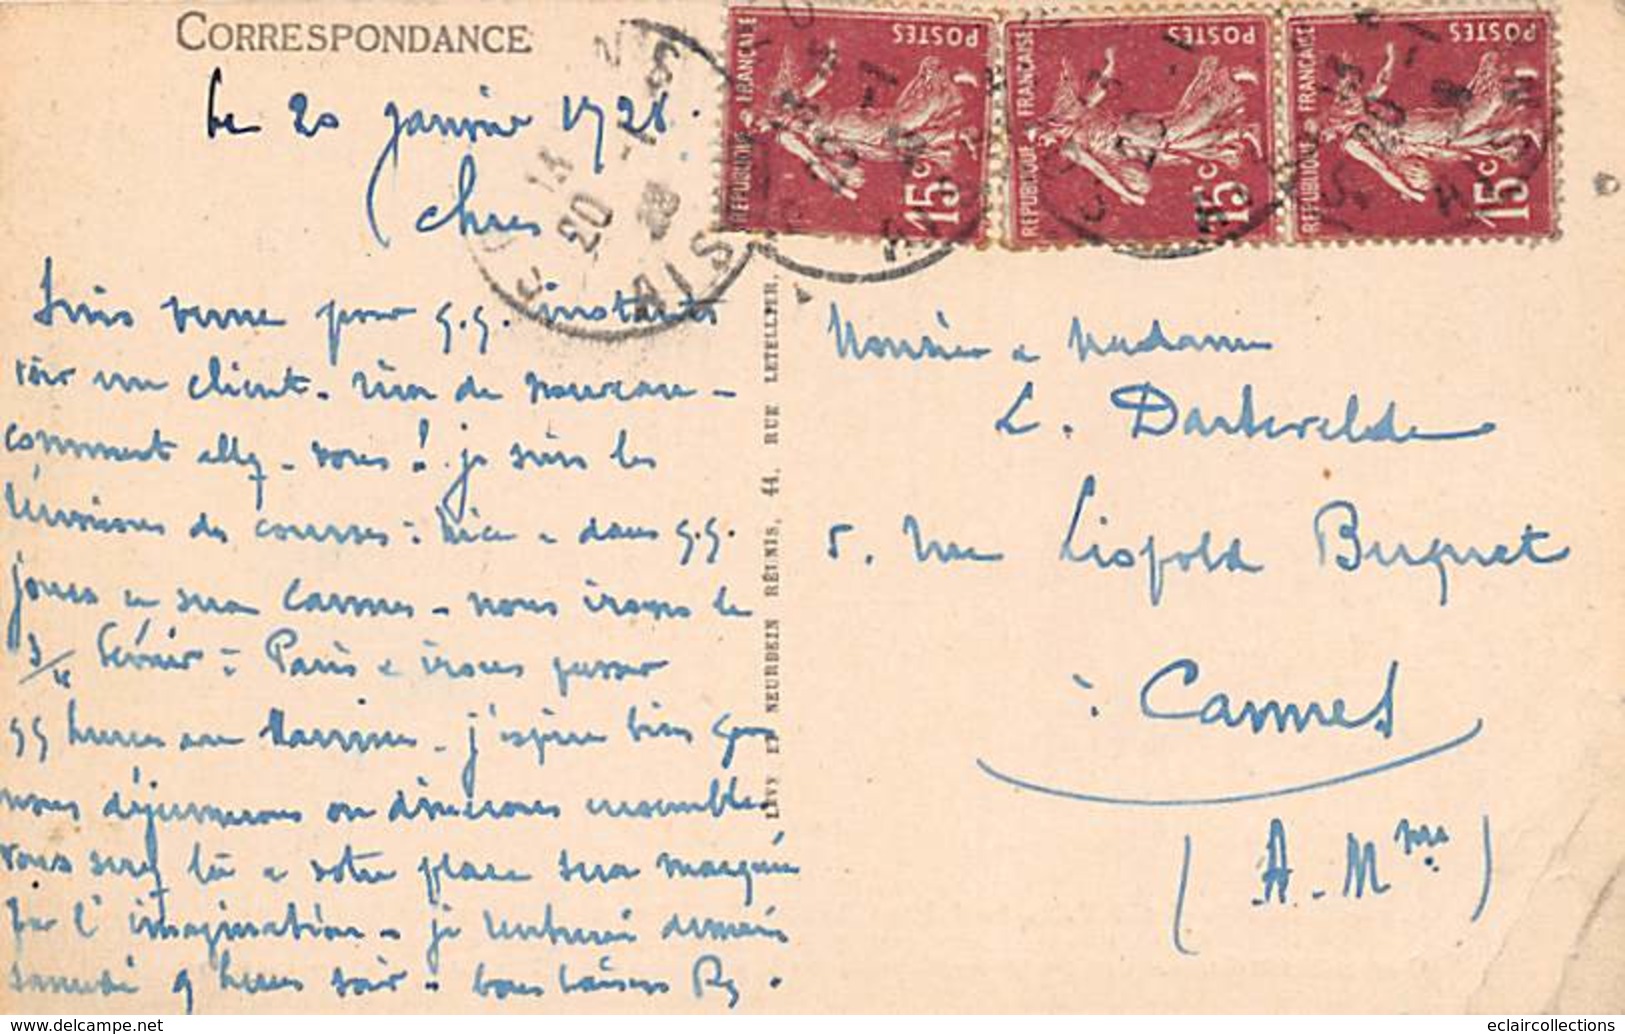 CORRESPONDANCE
Le 20 janvier 1928.
Chers
Suis venue pour q.q. instants
voir un client - rien de nouveau -
comment allez-vous! je suis les
réunions des courses : Nice - dans q.q.
jours ce sera Cannes - nous irons le
3/4 février à Paris & irons passer
qq heures au
nous déjeunerons ou dînerons ensemble
vous serez là & votre place sera marquée
par l'imagination - je rentrerai demain
samedi 9 heures soir - bons baisers
LÉVY ET NEURDEIN RÉUNIS, 44, RUE LETELLIER,
REPUBLIQUE FRANÇAISE POSTES 15c
REPUBLIQUE FRANÇAISE POSTES 15c
REPUBLIQUE FRANÇAISE POSTES 15c
13
20 -1
28
Monsieur & Madame
L. Dartevelde
5. rue Léopold Buquet
à Cannes
(A-Mmes)
eclaircollections